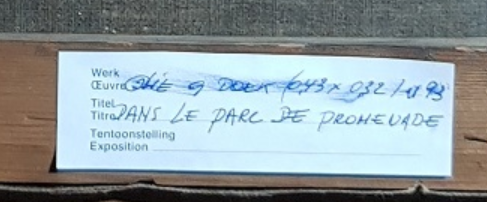 Werk
Œuvre OLIE op DOEK (0,43 x 0,32)
Titel
Titre DANS LE PARC DE PROMENADE
Tentoonstelling
Exposition